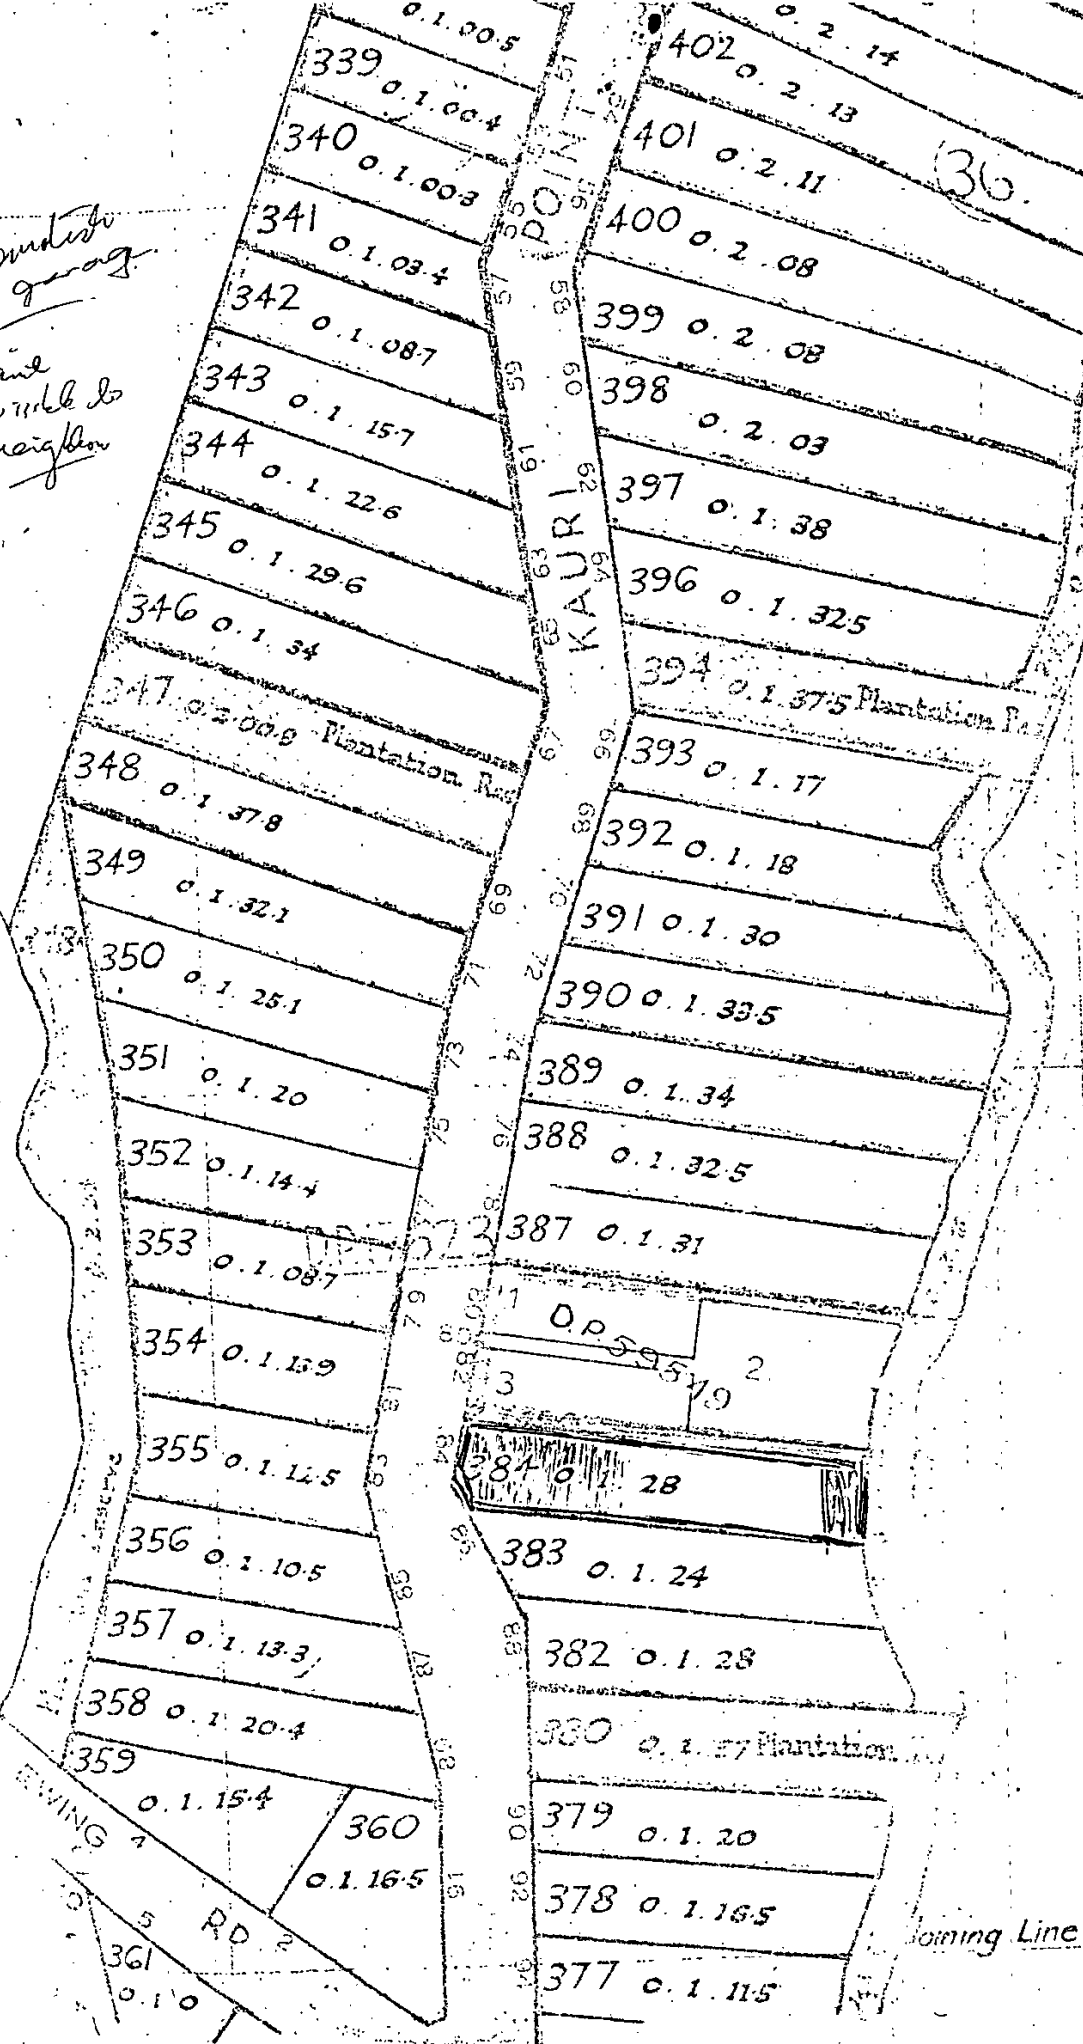 0.1.00.5
339 0.1.00.4
340 0.1.00.3
341 0.1.03.4
342 0.1.08.7
343 0.1.15.7
344 0.1.22.6
345 0.1.29.6
346 0.1.34
347 0.2.00.9 Plantation Res
348 0.1.37.8
349 0.1.32.1
350 0.1.25.1
351 0.1.20
352 0.1.14.4
353 0.1.08.7
354 0.1.13.9
355 0.1.12.5
356 0.1.10.5
357 0.1.13.3
358 0.1.20.4
359 0.1.15.4
360 0.1.16.5
361 0.1.0
EWING RD
4
5
2
KAURI POINT
51
53
55
57
59
61
63
65
67
69
71
73
75
77
79
81
83
85
87
89
91
56
58
60
62
64
66
68
70
72
74
76
78
80
82
84
86
88
90
92
94
0.2.14
402 0.2.13
401 0.2.11
(36).
400 0.2.08
399 0.2.08
398 0.2.03
397 0.1.38
396 0.1.32.5
394 0.1.37.5 Plantation Res
393 0.1.17
392 0.1.18
391 0.1.30
390 0.1.33.5
389 0.1.34
388 0.1.32.5
387 0.1.31
1
D.P 59579
2
3
384 0.1.28
383 0.1.24
382 0.1.28
380 0.1.27 Plantation
379 0.1.20
378 0.1.16.5
377 0.1.11.5
Joining Line
garag
neighbour